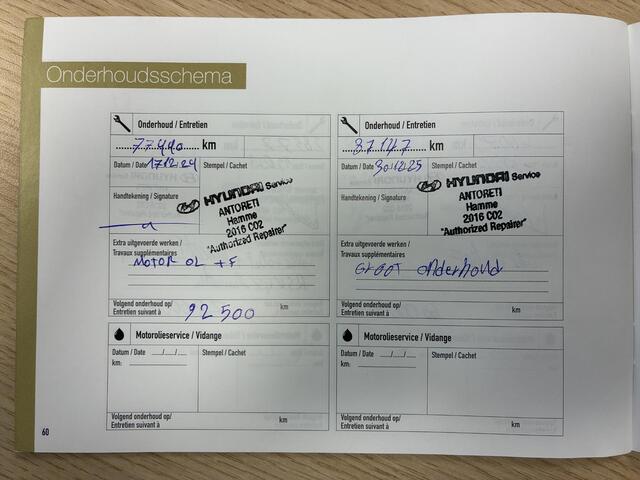 Onderhoudsschema
Onderhoud / Entretien
77440 km
Datum / Date 17.12.24
Stempel / Cachet
Handtekening / Signature
HYUNDAI Service
ANTORETI
Hamme
2016 C02
"Authorized Repairer"
Extra uitgevoerde werken /
Travaux supplémentaires
MOTOR OL + F
Volgend onderhoud op/
Entretien suivant à 92 500 km
Onderhoud / Entretien
87147 km
Datum / Date 30.12.25
Stempel / Cachet
Handtekening / Signature
HYUNDAI Service
ANTORETI
Hamme
2016 C02
"Authorized Repairer"
Extra uitgevoerde werken /
Travaux supplémentaires
GROOT onderhoud
Volgend onderhoud op/
Entretien suivant à km
Motorolieservice / Vidange
Datum / Date __/__/__
Stempel / Cachet
km:
Volgend onderhoud op/
Entretien suivant à km
Motorolieservice / Vidange
Datum / Date __/__/__
Stempel / Cachet
km:
Volgend onderhoud op/
Entretien suivant à km
60